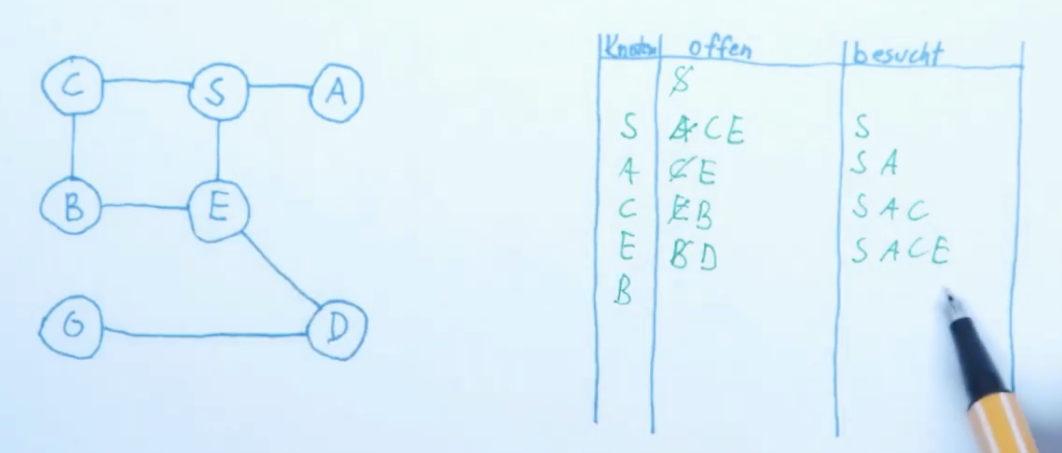 C S A
B E
G D
Knoten offen besucht
S
S A C E S
A C E S A
C E B S A C
E B D S A C E
B